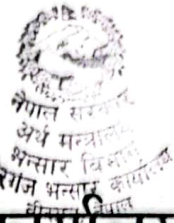 नेपाल सरकार
अर्थ मन्त्रालय
भन्सार विभाग
भन्सार कार्यालय
नेपाल